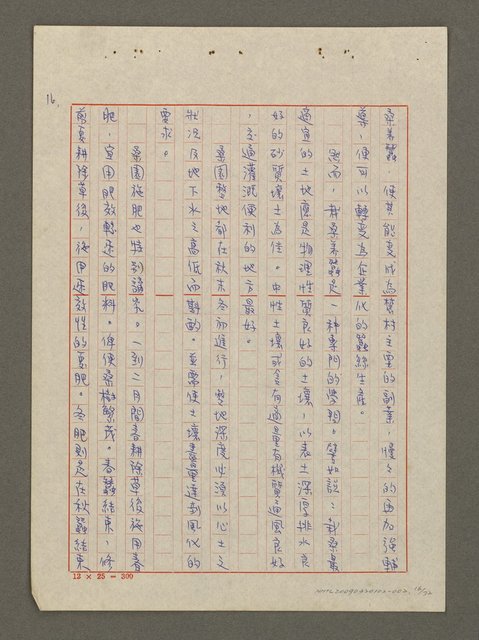 16.
桑養蠶,使其能變成為農村主要的副業,慢々的再加強輔
導,便可以轉變為企業化的蠶絲生產。
然而,栽桑養蠶是一種專門的學問。譬如說:栽桑最
適宜的土地應是物理性質良好的土壤,以表土深厚排水良
好的砂質壤土為佳。中性土壤或含有適量有機質通風良好
,交通灌溉便利的地方最好。
桑園整地都在秋末冬初進行,整地深度性須以心土之
狀況及地下水之高低而斟酌。並要使土壤儘量達到風化的
要求。
桑園施肥也特別講求。一到二月間春耕除草後施用春
肥,宜用肥效較速的肥料。俾使桑樹繁茂。春蠶結束,修
剪夏耕除草後,施用速效性的夏肥。冬肥則是在秋蠶結束
12 × 25 = 300
NMTL20090230102-002
16/72